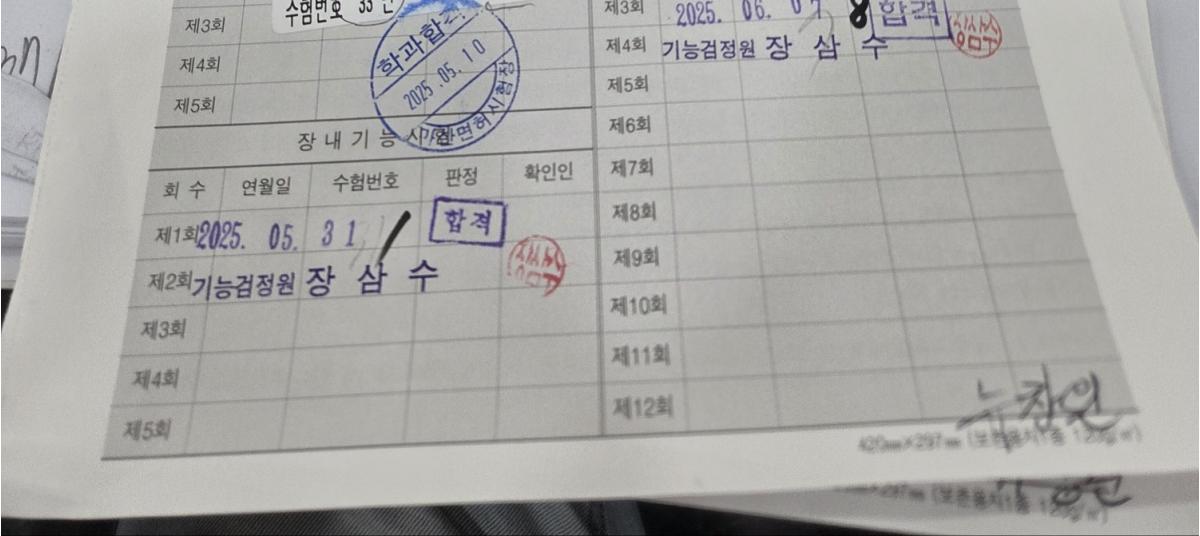 수험번호
제3회
제4회
제5회
학과합격
2025. 05. 10
면허시험장
장 내 기 능 시 험
회 수 연월일 수험번호 판정 확인인
제1회 2025. 05. 31 / 합격
제2회 기능검정원 장 삼 수
제3회
제4회
제5회
제3회 2025. 06. 07 8 합격
제4회 기능검정원 장 삼 수
제5회
제6회
제7회
제8회
제9회
제10회
제11회
제12회
420㎜×297㎜ (보존용지1종 120g/㎡)